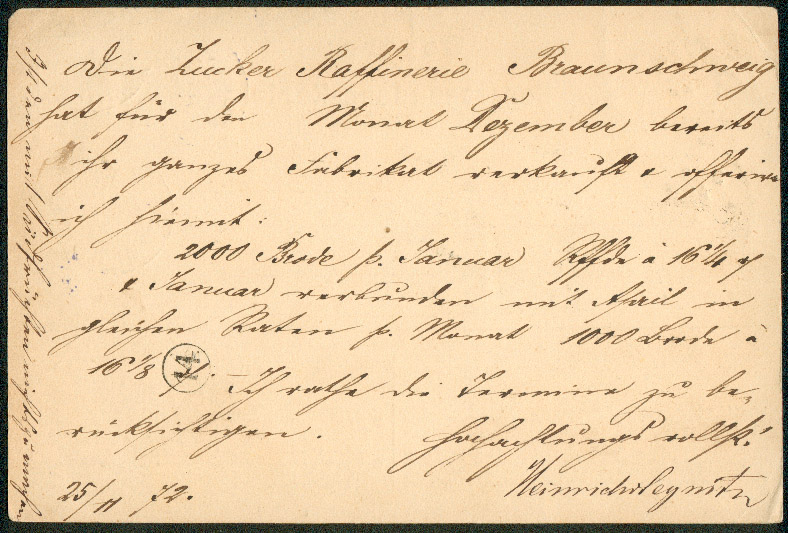 Die Zucker Raffinerie Braunschweig
hat für den Monat Dezember bereits
ihr ganzes Fabrikat verkauft & offerire
ich hiermit:
2000 Brode p. Januar à 16 1/4
& Januar verbunden mit April in
gleichen Raten p. Monat 1000 Brode à
16 1/8 – Ich rathe die Termine zu be-
rücksichtigen. Hochachtungsvollst
Heinrich
25/11 72.
14